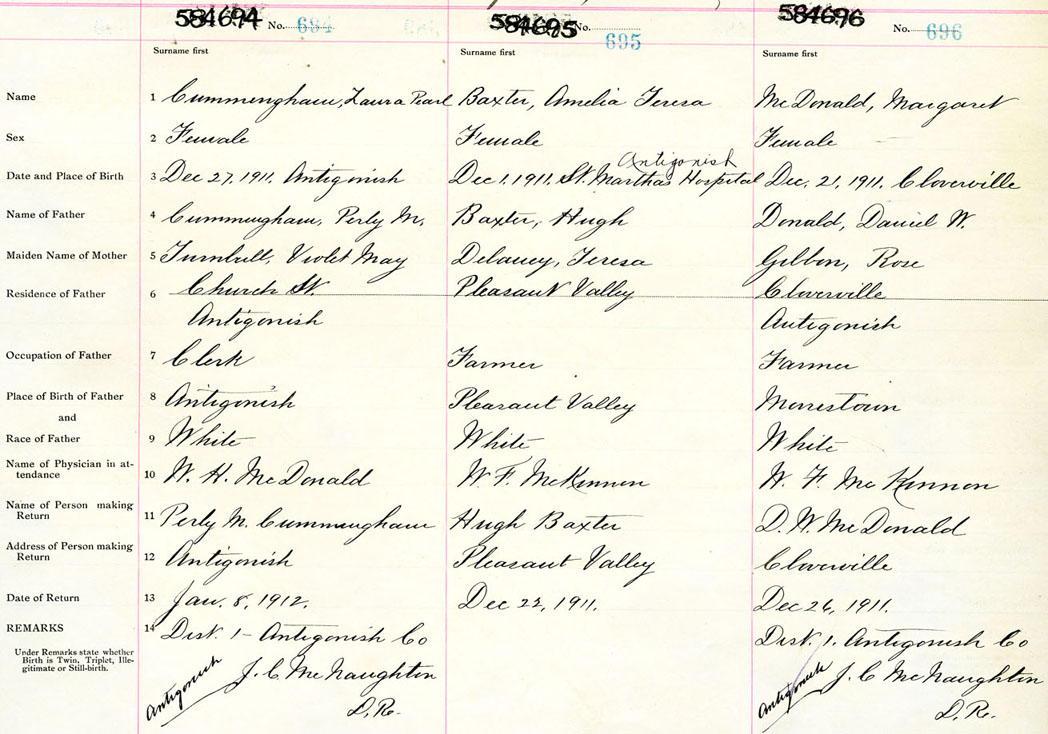 584694 No. 694 584695 No. 695 584696 No. 696
Surname first Surname first Surname first
Name 1 Cummengham, Laura Pearl Baxter, Amelia Teresa McDonald, Margaret
Sex 2 Female Female Female
Antigonish
Date and Place of Birth 3 Dec 27, 1911. Antigonish Dec 1. 1911. St. Marthas Hospital Dec. 21, 1911. Cloverville
Name of Father 4 Cummingham, Perly M. Baxter, Hugh Donald, Daniel W.
Maiden Name of Mother 5 Turnbull, Violet May Delaney, Teresa Gibbon, Rose
Residence of Father 6 Church St. Pleasant Valley Cloverville
Antigonish Antigonish
Occupation of Father 7 Clerk Farmer Farmer
Place of Birth of Father 8 Antigonish Pleasant Valley Morrestown
and
Race of Father 9 White White White
Name of Physician in at-
tendance 10 W. H. McDonald W. F. McKinnon W. F. McKinnon
Name of Person making
Return 11 Perly M. Cummingham Hugh Baxter D. W. McDonald
Address of Person making
Return 12 Antigonish Pleasant Valley Cloverville
Date of Return 13 Jan. 8, 1912. Dec 22, 1911. Dec 26, 1911.
REMARKS 14 Dist. 1 - Antigonish Co Dist 1. Antigonish Co
Under Remarks state whether
Birth is Twin, Triplet, Ille-
gitimate or Still-birth.
Antigonish J. C. McNaughton Antigonish J. C. McNaughton
D. R. D. R.